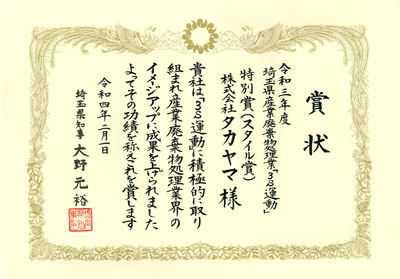 賞状
令和三年度
埼玉県産業廃棄物処理業"3S運動"
特別賞(スタイル賞)
株式会社タカヤマ 様
貴社は"3S運動"に積極的に取り
組まれ産業廃棄物処理業界の
イメージアップに成果を上げられました
よってその功績を称されを賞します
令和四年二月一日
埼玉県知事 大野元裕